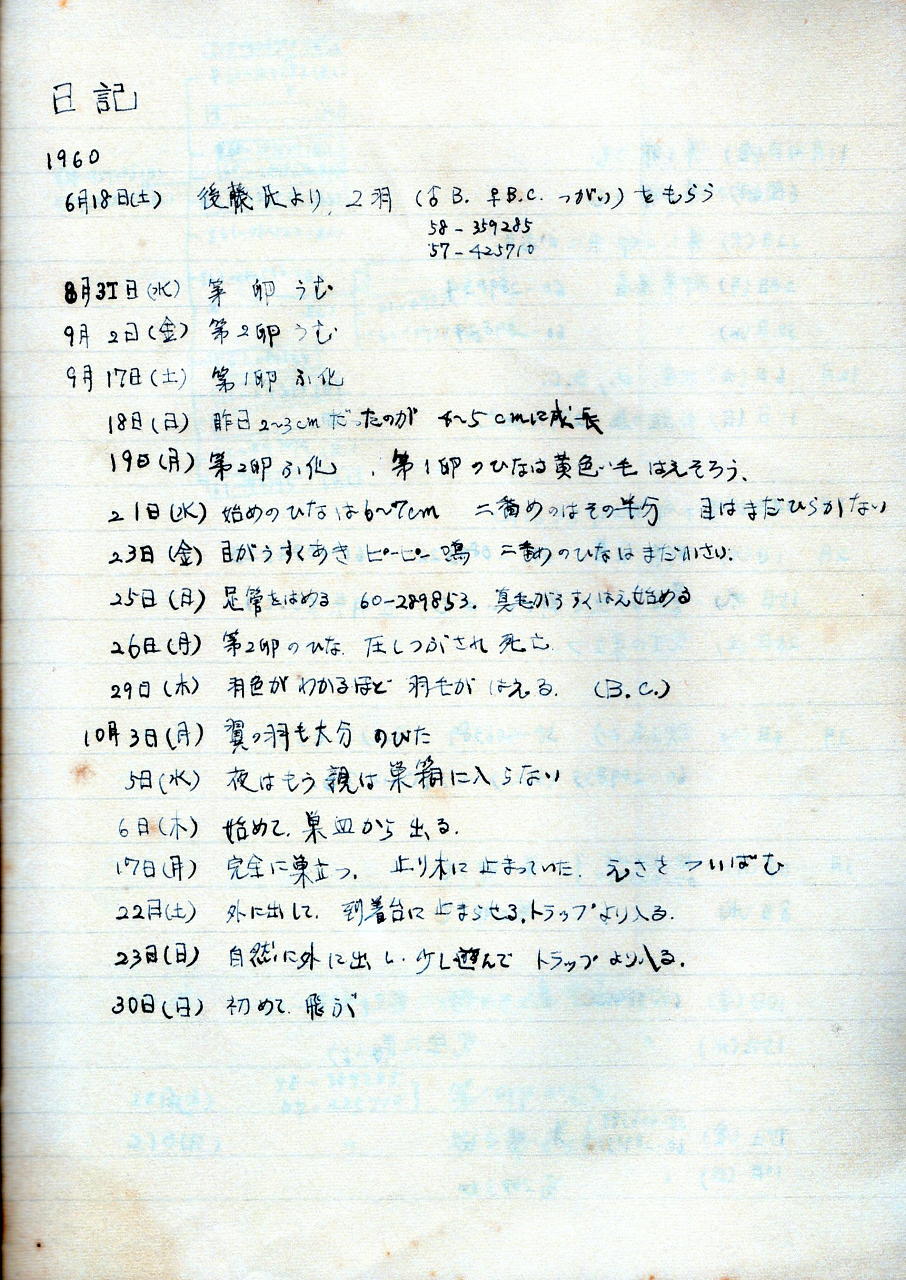 日記
1960
6月18日(土) 後藤氏より、2羽 (♂B. ♀B.C. つがい)をもらう
58-359285
'57-425710
8月31日(水) 第 卵 うむ
9月 2日(金) 第2卵 うむ
9月17日(土) 第1卵 ふ化
18日(日) 昨日2~3cmだったのが 4~5cmに成長
19日(月) 第2卵ふ化 、第1卵のひなは黄色い毛 はえそろう、
21日(水) 始めのひなは6~7cm 二番めのはその半分 目はまだひらかない
23日(金) 目がうすくあき ピーピー鳴 二番めのひなはまだ小さい.
25日(日) 足管をはめる 60-289853. 真毛がうすくはえ始める
26日(月) 第2卵のひな 圧しつぶされ 死亡.
29日(木) 羽色がわかるほど 羽毛が はえる. (B.C.)
10月3日(月) 翼の羽も大分 のびた
5日(水) 夜はもう親は巣箱に入らない
6日(木) 始めて、巣皿から出る.
17日(月) 完全に巣立つ. 止り木に止まっていた. えさを ついばむ
22日(土) 外に出して、到着台に止まらせる,トラップより入る.
23日(日) 自然に外に出し、少し遊んで トラップより入る.
30日(日) 初めて、飛ぶ